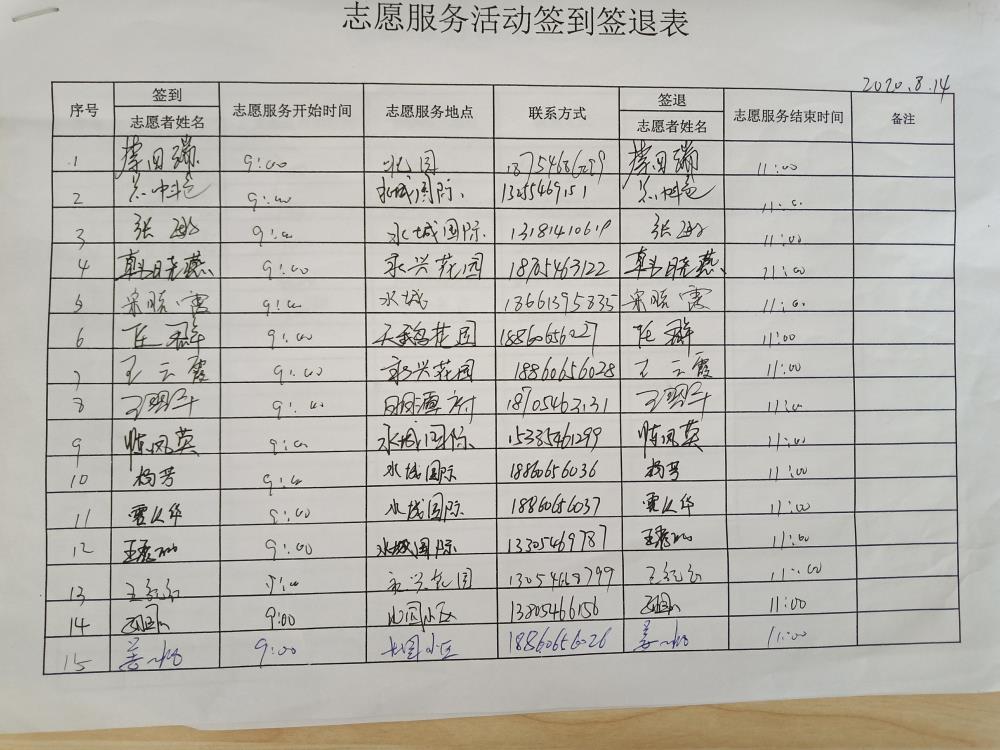 志愿服务活动签到签退表
2020.8.14
序号 签到 志愿者姓名 志愿服务开始时间 志愿服务地点 联系方式 签退 志愿者姓名 志愿服务结束时间 备注
1 9:00 11:00
2 9:00 水城国际 13255469151 11:00
3 张 9:00 水城国际 13181410619 张 11:00
4 韩晓燕 9:00 永兴花园 18705463122 韩晓燕 11:00
5 宋晓霞 9:00 水城 18661395835 宋晓霞 11:00
6 任群 9:00 花园 18860656027 任群 11:00
7 王云霞 9:00 永兴花园 18860656028 王云霞 11:00
8 王 9:00 18705463131 王 11:00
9 陈凤英 9:00 水城国际 15385461299 陈凤英 11:00
10 杨芳 9:00 水城国际 18860656036 杨芳 11:00
11 9:00 水城国际 18860656037 11:00
12 王 9:00 水城国际 13305469787 王 11:00
13 王 9:00 永兴花园 王 11:00
14 9:00 小区 13805466156 11:00
15 姜 9:00 小区 18860656026 姜 11:00